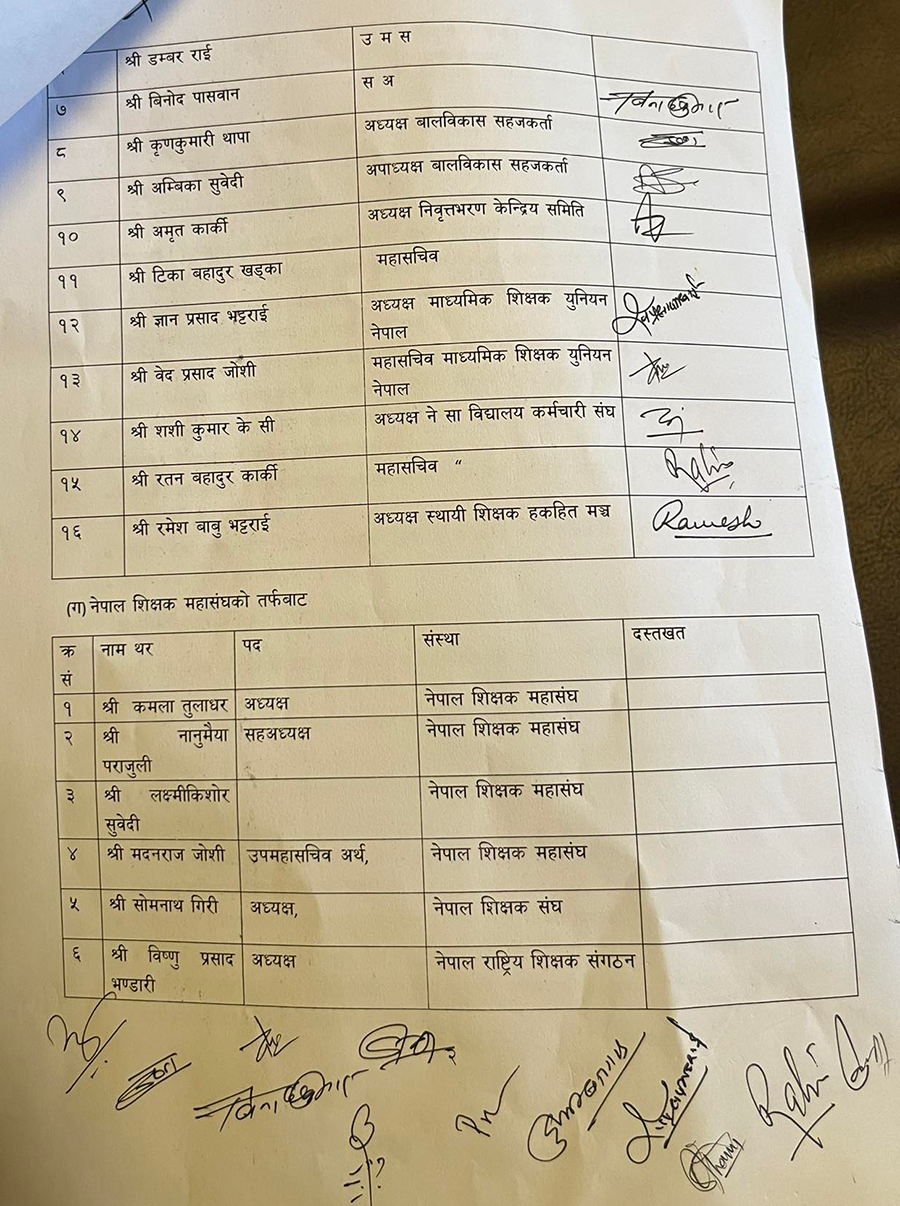 श्री डम्बर राई उ म स
७ श्री बिनोद पासवान स अ
८ श्री कृणकुमारी थापा अध्यक्ष बालविकास सहजकर्ता
९ श्री अम्बिका सुवेदी अपाध्यक्ष बालविकास सहजकर्ता
१० श्री अमृत कार्की अध्यक्ष निवृत्तभरण केन्द्रिय समिति
११ श्री टिका बहादुर खड्का महासचिव
१२ श्री ज्ञान प्रसाद भट्टराई अध्यक्ष माध्यमिक शिक्षक युनियन
नेपाल
१३ श्री वेद प्रसाद जोशी महासचिव माध्यमिक शिक्षक युनियन
नेपाल
१४ श्री शशी कुमार के सी अध्यक्ष ने सा विद्यालय कर्मचारी संघ
१५ श्री रतन बहादुर कार्की महासचिव “
१६ श्री रमेश बाबु भट्टराई अध्यक्ष स्थायी शिक्षक हकहित मञ्च Ramesh
(ग) नेपाल शिक्षक महासंघको तर्फबाट
क्र नाम थर पद संस्था दस्तखत
सं
१ श्री कमला तुलाधर अध्यक्ष नेपाल शिक्षक महासंघ
२ श्री नानुमैया सहअध्यक्ष नेपाल शिक्षक महासंघ
पराजुली
३ श्री लक्ष्मीकिशोर नेपाल शिक्षक महासंघ
सुवेदी
४ श्री मदनराज जोशी उपमहासचिव अर्थ, नेपाल शिक्षक महासंघ
५ श्री सोमनाथ गिरी अध्यक्ष, नेपाल शिक्षक संघ
६ श्री विष्णु प्रसाद अध्यक्ष नेपाल राष्ट्रिय शिक्षक संगठन
भण्डारी